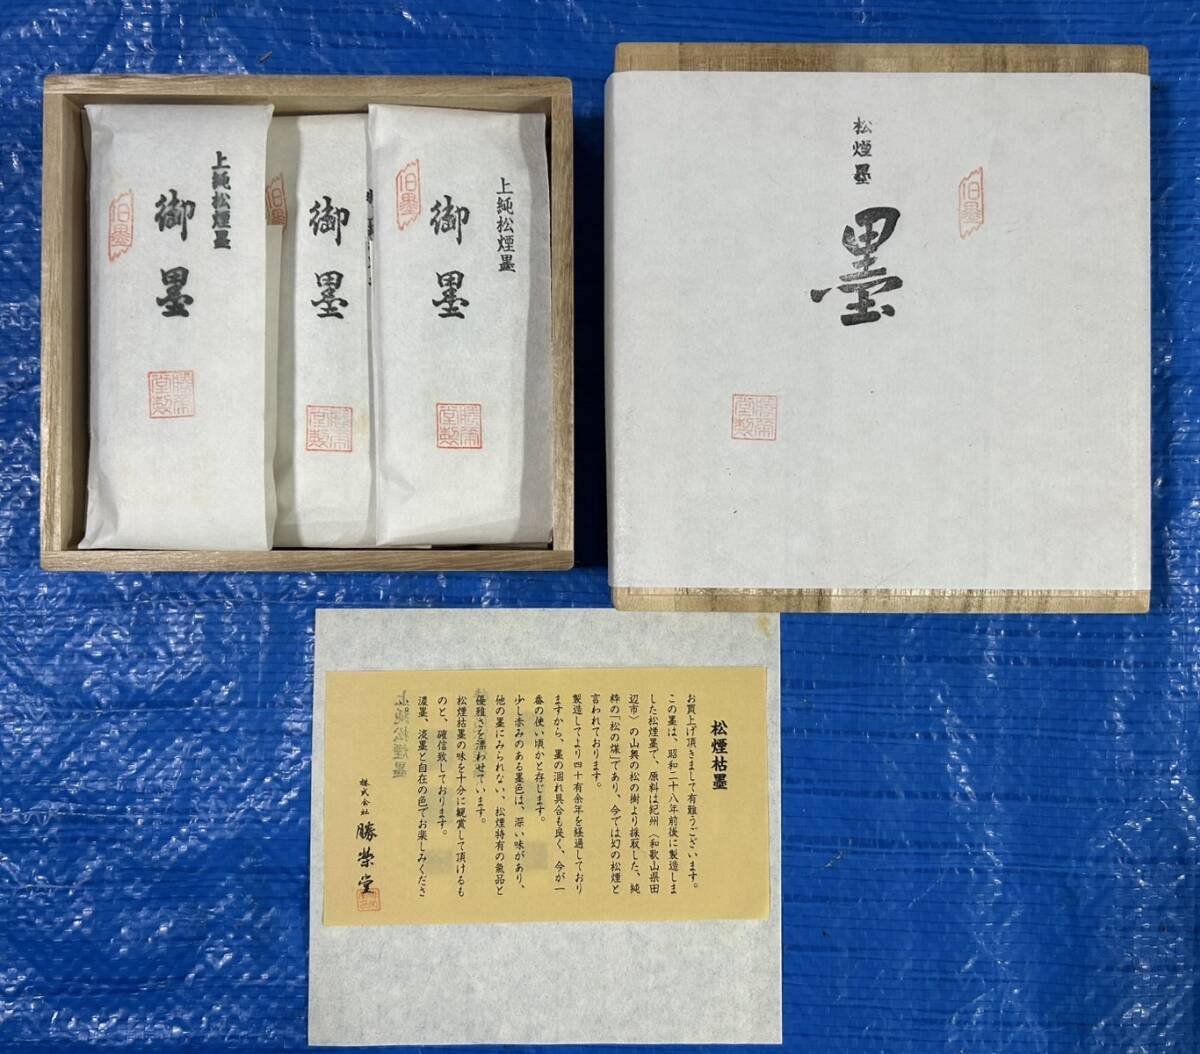 上純松煙墨
御墨
旧墨
勝栄堂製
御墨
旧墨
勝栄堂製
上純松煙墨
御墨
旧墨
勝栄堂製
松煙墨
墨
旧墨
勝栄堂製
松煙枯墨
お買上げ頂きまして有難うございます。
この墨は、昭和二十八年前後に製造しま
した松煙墨で、原料は紀州（和歌山県田
辺市）の山奥の松の樹より採取した、純
粋の「松の煤」であり、今では幻の松煙と
言われております。
製造してより四十有余年を経過しており
ますから、墨の涸れ具合も良く、今が一
番の使い頃かと存じます。
少し赤みのある墨色は、深い味があり、
他の墨にみられない、松煙特有の氣品と
優雅さを漂わせています。
松煙枯墨の味を十分に観賞して頂けるも
のと、確信致しております。
濃墨、淡墨と自在の色でお楽しみくださ
株式会社 勝栄堂